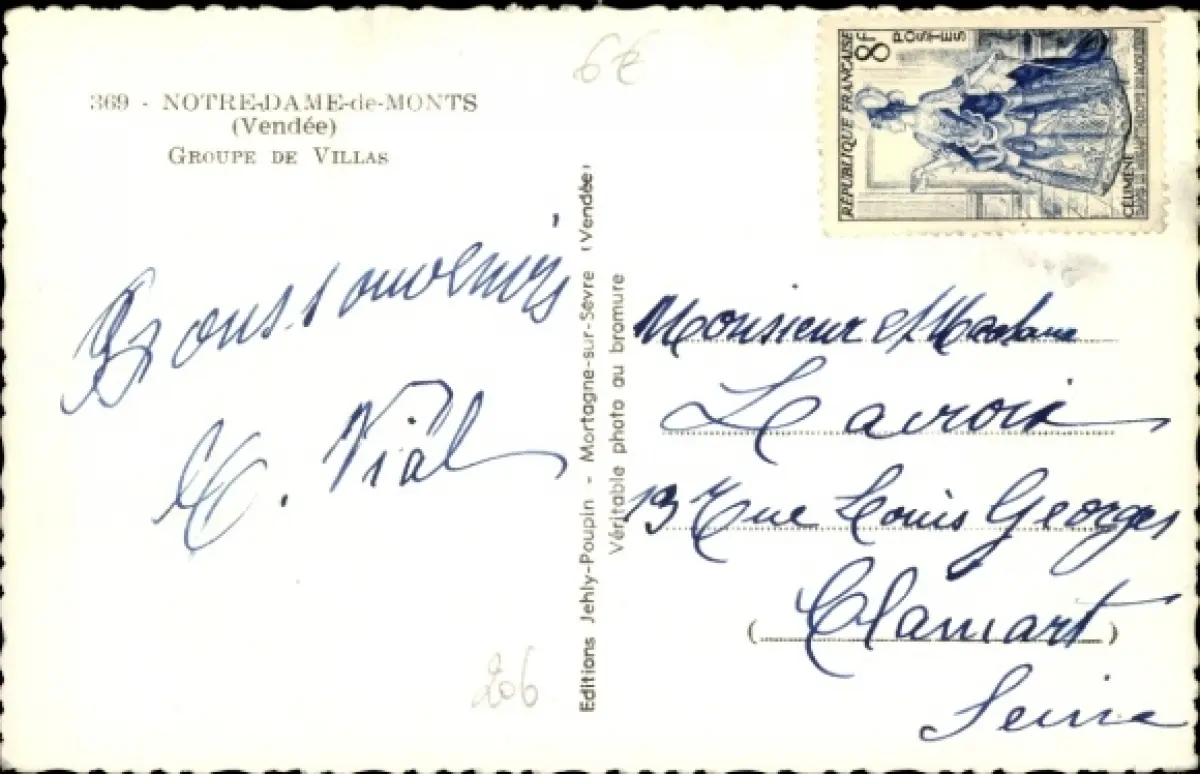 369 - NOTRE-DAME-de-MONTS
(Vendée)
GROUPE DE VILLAS
6€
RÉPUBLIQUE FRANÇAISE
8F
POSTES
CÉLIMENE
Bons souvenirs
Vial
206
Editions Jehly-Poupin - Mortagne-sur-Sèvre (Vendée)
Véritable photo au bromure
Monsieur et Madame
Lacroix
13 Rue Louis Georges
(Clamart)
Seine